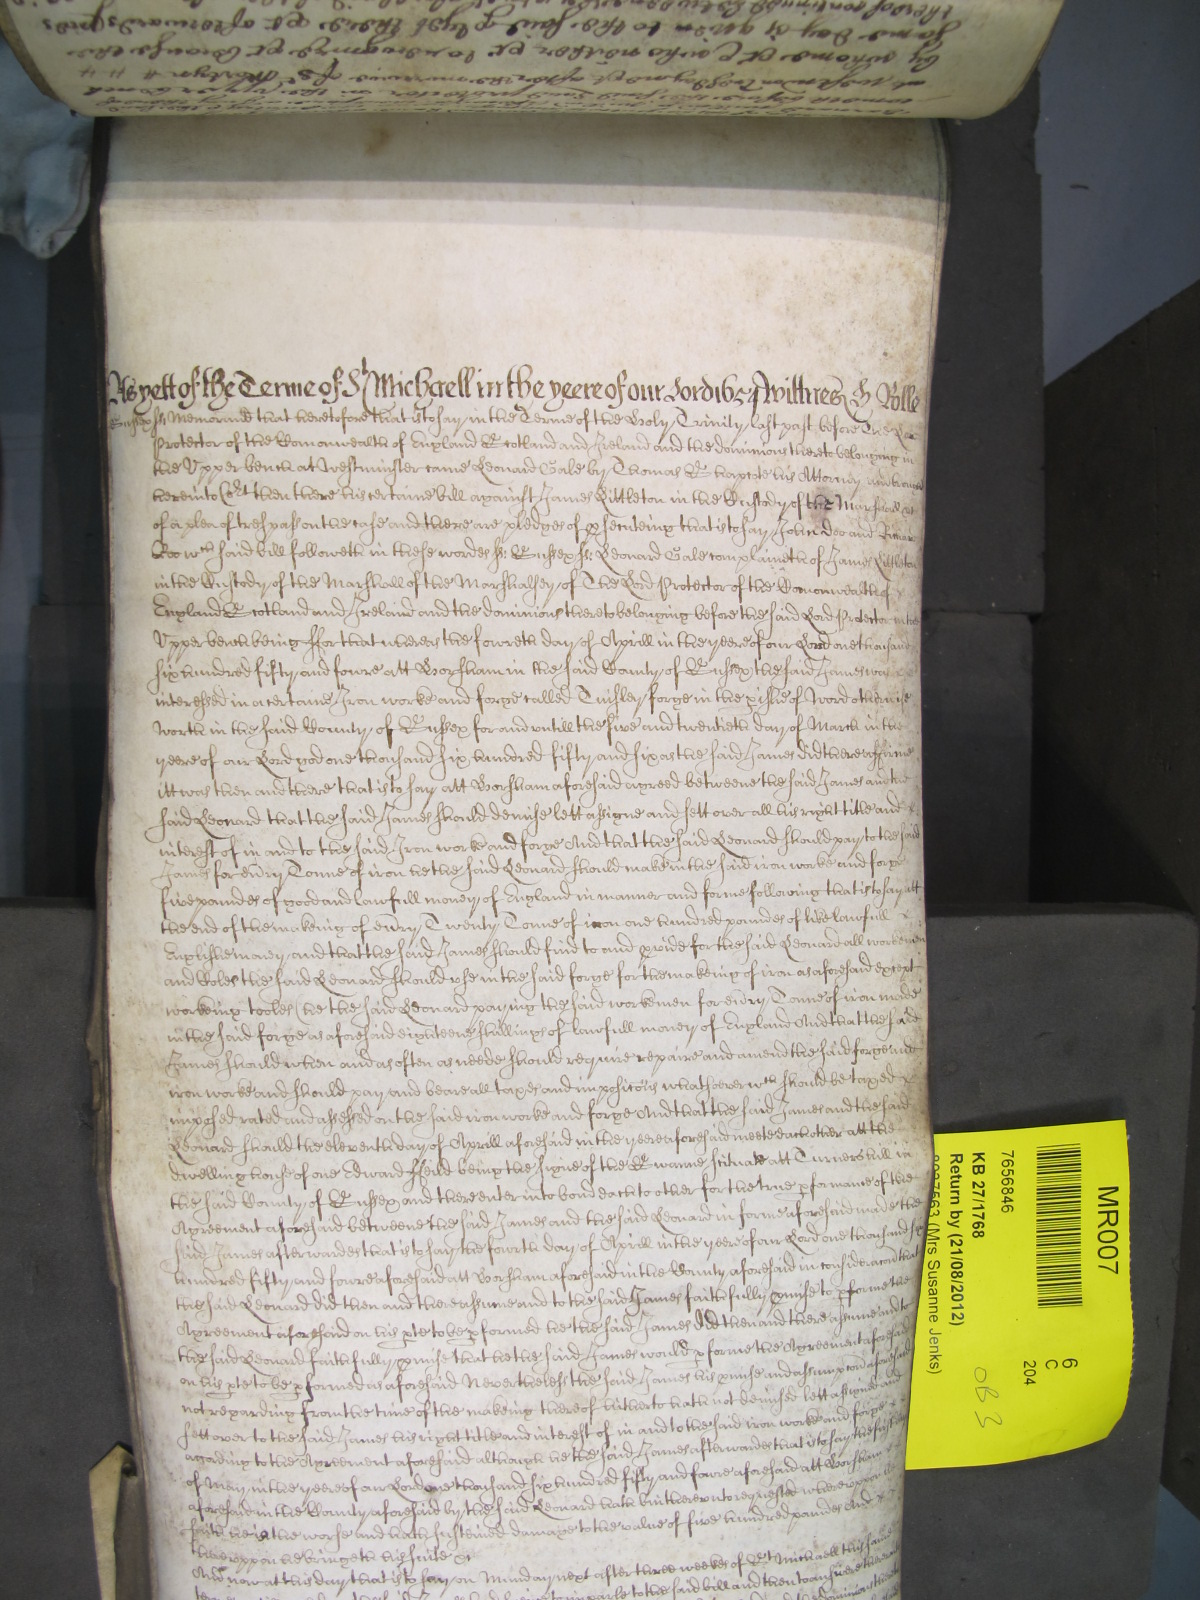 As yett of the Terme of St Michaell in the yeere of our Lord 1654 wittnes H Rolle
Sussex ss Memorand that heretofore that is to say in the Terme of the Holy Trinity last past before The Lord
Protector of the Comonwealth of England Scotland and Ireland and the dominions thereto belonging in
the Upper bench at Westminster came Leonard Gale by Thomas his Attorney and brought
here into Cort then there his certaine bill against James Littleton in the Custody of the Marshall &c
of a plea of trespass on the case and there are pledges of psecuteing that is to say John Doe and Richard
Roe wch said bill followeth in these wordes ss Sussex ss Leonard Gale complaineth of James Littleton
in the Custody of the Marshall of the Marshalsey of The Lord Protector of the Comonwealth of
England Scotland and Ireland and the dominions thereto belonging before the said Lord Protector in the
Upper bench being ffor that whereas the fowerth day of Aprill in the yeere of our Lord one thousand
six hundred fifty and fowre att Horsham in the said County of Sussex the said James was
interessed in a certaine Iron worke and forge called Tinsley forge in the pishe of Word otherwise
Worth in the said County of Sussex for and untill the five and twentieth day of March in the
yeere of our Lord god one thousand six hundred fifty and six as the said James did there affirme
itt was then and there that is to say att Horsham aforesaid agreed betweene the said James and the
said Leonard that the said James should demise lett assigne and sett over all his right title and
interest of in and to the said Iron worke and forge And that the said Leonard should pay to the said
James for every Tonne of iron he the said Leonard should make in the said iron worke and forge
five poundes of good and lawfull money of England in manner and forme following that is to say att
the end of the making of every Twenty Tonne of iron one hundred poundes of like lawfull
English money and that the said James should find to and pvide for the said Leonard all workemen
and tooles the said Leonard should use in the said forge for the makeing of iron as aforesaid except
workeing tooles he the said Leonard paying the said workemen for every Tonne of iron made
in the said forge as aforesaid eighteene shillings of lawfull money of England And that the said
James should when and as often as neede should require repaire and amend the said forge and
iron worke and should pay and beare all taxes and imposicons whatsoever wch should be taxed
imposed rated and assessed on the said iron worke and forge And that the said James and the said
Leonard should the eleventh day of Aprill aforesaid in the yeere aforesaid meete each other att the
dwelling house of one Edward ffeild being the signe of the Swanne scituate att Turners hill in
the said County of Sussex and there enter into bond each to other for the true pformance of the
Agreement aforesaid betweene the said James and the said Leonard in forme aforesaid made the
said James afterwardes that is to say the fourth day of Aprill in the yeere of our Lord one thousand six
hundred fifty and fowre aforesaid att Horsham aforesaid in the County aforesaid in consideracon that
the said Leonard did then and there assume and to the said James faithfully pmise to pforme the
Agreement aforesaid on his pte to be pformed he the said James did then and there assume and to
the said Leonard faithfully pmise that he the said James would pforme the Agreement aforesaid
on his pte to be pformed as aforesaid Neverthelesse the said James his pmise and assumpcon aforesaid
not regarding from the time of the makeing thereof hitherto hath not demised lett assigned and
sett over to the said James his right title and interest of in and to the said iron worke and forge
according to the Agreement aforesaid although he the said James afterwardes that is to say the first day
of May in the yeere of our Lord one thousand six hundred fifty and fowre aforesaid att Horsham
aforesaid in the County aforesaid by the said Leonard hath bin thereunto requested whereuppon he
saith he is the worse and hath susteined damage to the value of five hundred poundes And
thereuppon he bringeth his suite &c
And now at this day that is to say on Munday next after three weekes of St Michaell this same
MR007
6
C
204
7656846
KB 27/1768
Return by (21/08/2012)
(Mrs Susanne Jenks)
OB 3